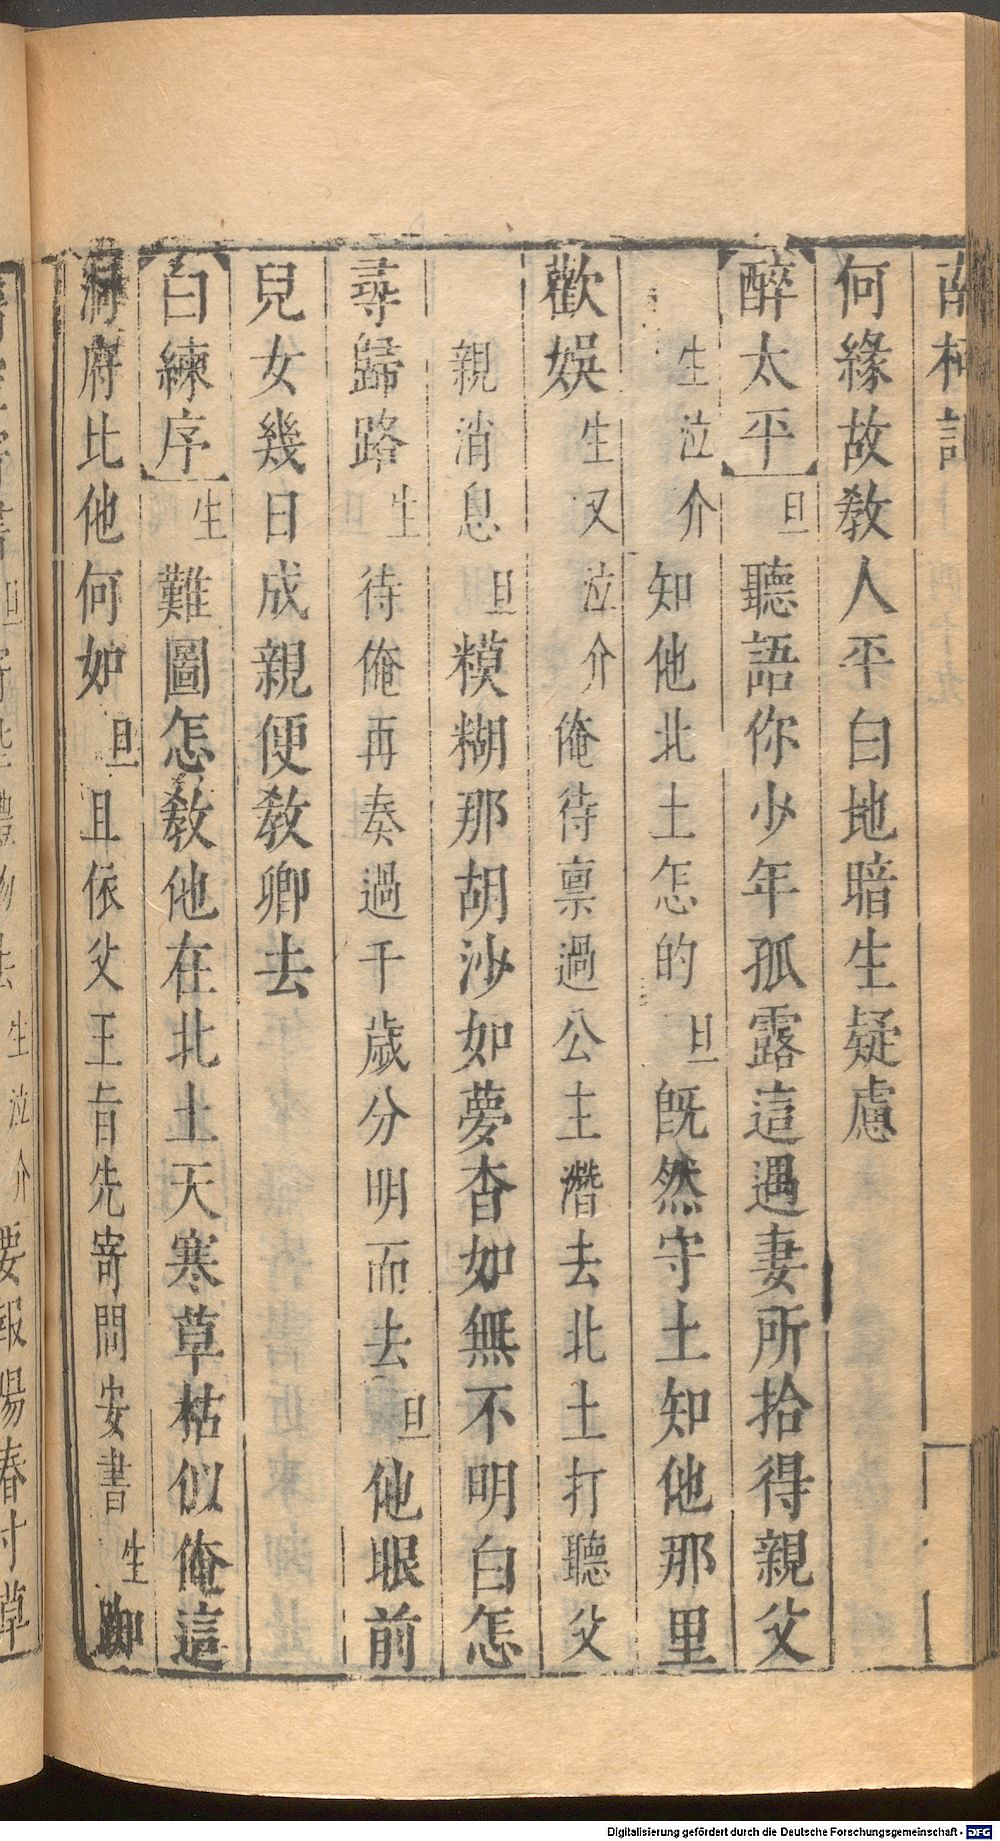 南柯記
何緣故教人平白地暗生疑慮
醉太平旦聽語你少年孤露這遇妻所拾得親父
生泣介知他北土怎的旦既然守土知他那里
歡娛生又泣介俺待禀過公主潛去北土打聽父
親消息旦糢糊那胡沙如夢杳如無不明白怎
尋歸路生待俺再奏過千歲分明而去旦他眼前
兒女幾日成親便教卿去
白練序生難圖怎教他在北土天寒草枯似俺這
府比他何如旦且依父王旨先寄問安書生
旦寄些禮物去生泣介要報陽春寸草
Digitalisierung gefördert durch die Deutsche Forschungsgemeinschaft - DFG